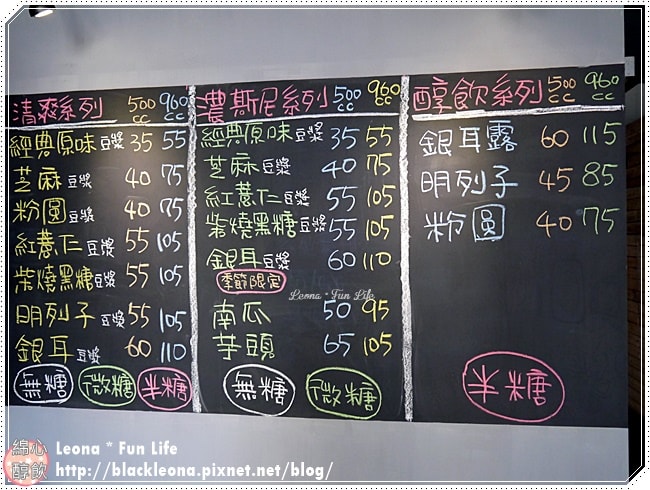 清爽系列 500cc 960cc
經典原味豆漿 35 55
芝麻豆漿 40 75
粉圓豆漿 40 75
紅薏仁豆漿 55 105
柴燒黑糖豆漿 55 105
明列子豆漿 55 105
銀耳豆漿 60 110
無糖 微糖 半糖
濃斯尼系列 500cc 960cc
經典原味豆漿 35 55
芝麻豆漿 40 75
紅薏仁豆漿 55 105
柴燒黑糖豆漿 55 105
銀耳豆漿 60 110
季節限定
Leona * Fun Life
南瓜 50 95
芋頭 65 105
無糖 微糖
醇飲系列 500cc 960cc
銀耳露 60 115
明列子 45 85
粉圓 40 75
半糖
綿心
醇飲
Leona * Fun Life
http://blackleona.pixnet.net/blog/